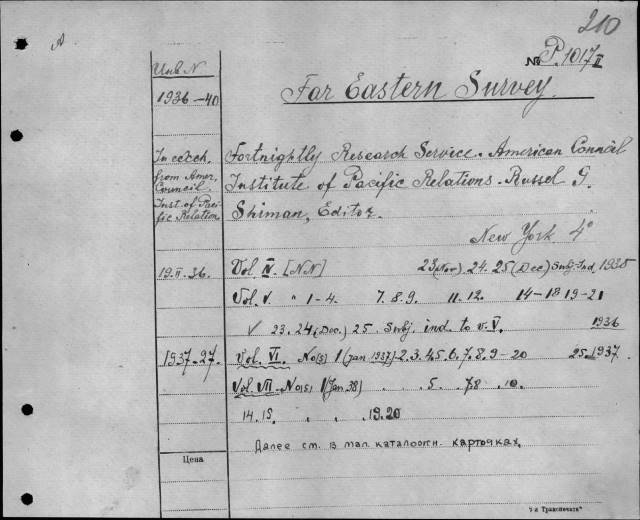 210
A
№ P.1017 II
Инв. N
1936-40
Far Eastern Survey.
In exch. from Amer. Council. Inst. of Pacific Relation
Fortnightly Research Service. American Council
Institute of Pacific Relations. Russel G.
Shiman, Editor.
New York 4°
19.II.36. Vol. IV [NN] 23 (Nov) 24. 25 (Dec) Subj. Ind. 1935
Vol. V. " 1-4. 7.8.9. 11.12. 14-18 19-21
V 23. 24 (Dec.) 25. Subj. ind. to v. V. 1936
1937-27. Vol. VI. No(s) 1 (Jan 1937)-2.3.4.5.6.7.8.9-20 25. 1937.
Vol. VII. No(s) 1 (Jan. 38) 5. 7.8 .10.
14.15. 19.20
Далее см. в мал. каталожн. карточках.
Цена
7-я Транспечать